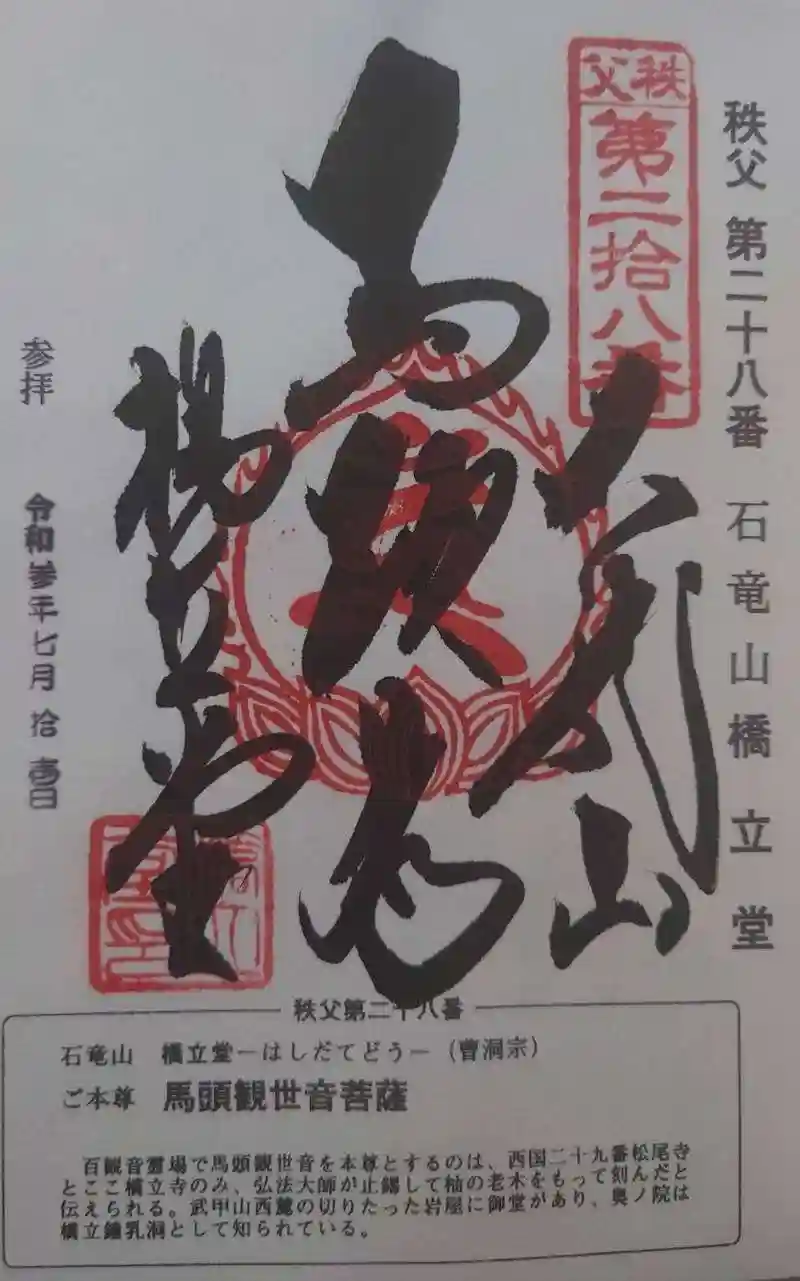 秩父 第二十八番 石竜山橋立堂
秩父
第二拾八番
石竜山
馬頭尊
橋立堂
参拝 令和参年七月拾壱日
秩父第二十八番
石竜山 橋立堂－はしだてどう－（曹洞宗）
ご本尊 馬頭観世音菩薩
百観音霊場で馬頭観世音を本尊とするのは、西国二十九番松尾寺
とここ橋立寺のみ、弘法大師が止錫して柚の老木をもって刻んだと
伝えられる。武甲山西麓の切りたった岩屋に御堂があり、奥ノ院は
橋立鐘乳洞として知られている。